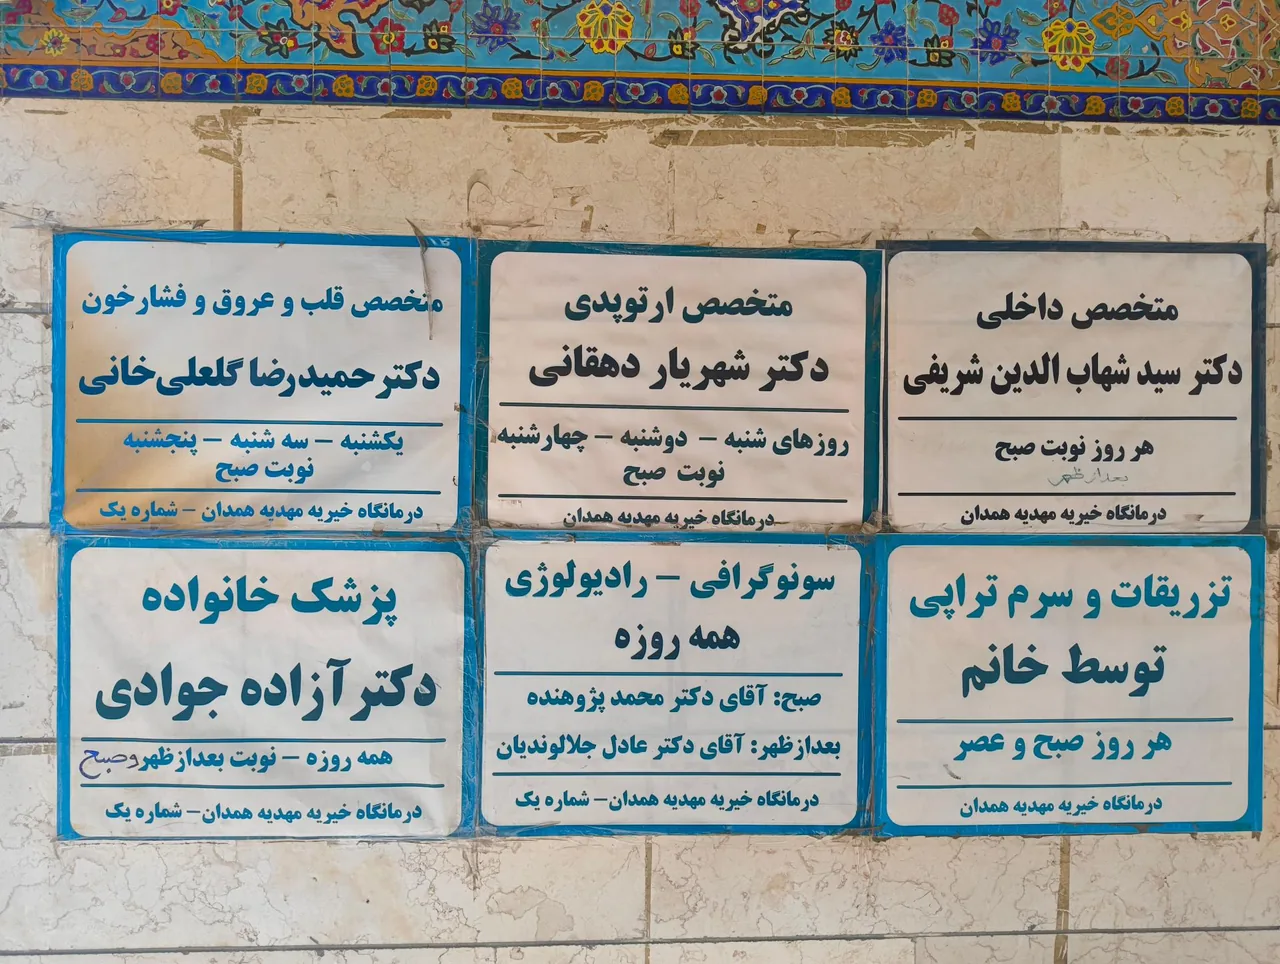 متخصص داخلی
دکتر سید شهاب الدین شریفی
هر روز نوبت صبح
بعدازظهر
درمانگاه خیریه مهدیه همدان
متخصص ارتوپدی
دکتر شهریار دهقانی
روزهای شنبه – دوشنبه – چهارشنبه
نوبت صبح
درمانگاه خیریه مهدیه همدان
متخصص قلب و عروق و فشارخون
دکتر حمیدرضا گلعلی‌خانی
یکشنبه – سه شنبه – پنجشنبه
نوبت صبح
درمانگاه خیریه مهدیه همدان – شماره یک
تزریقات و سرم تراپی
توسط خانم
هر روز صبح و عصر
درمانگاه خیریه مهدیه همدان
سونوگرافی – رادیولوژی
همه روزه
صبح: آقای دکتر محمد پژوهنده
بعدازظهر: آقای دکتر عادل جلالوندیان
درمانگاه خیریه مهدیه همدان– شماره یک
پزشک خانواده
دکتر آزاده جوادی
همه روزه – نوبت بعدازظهر وصبح
درمانگاه خیریه مهدیه همدان– شماره یک